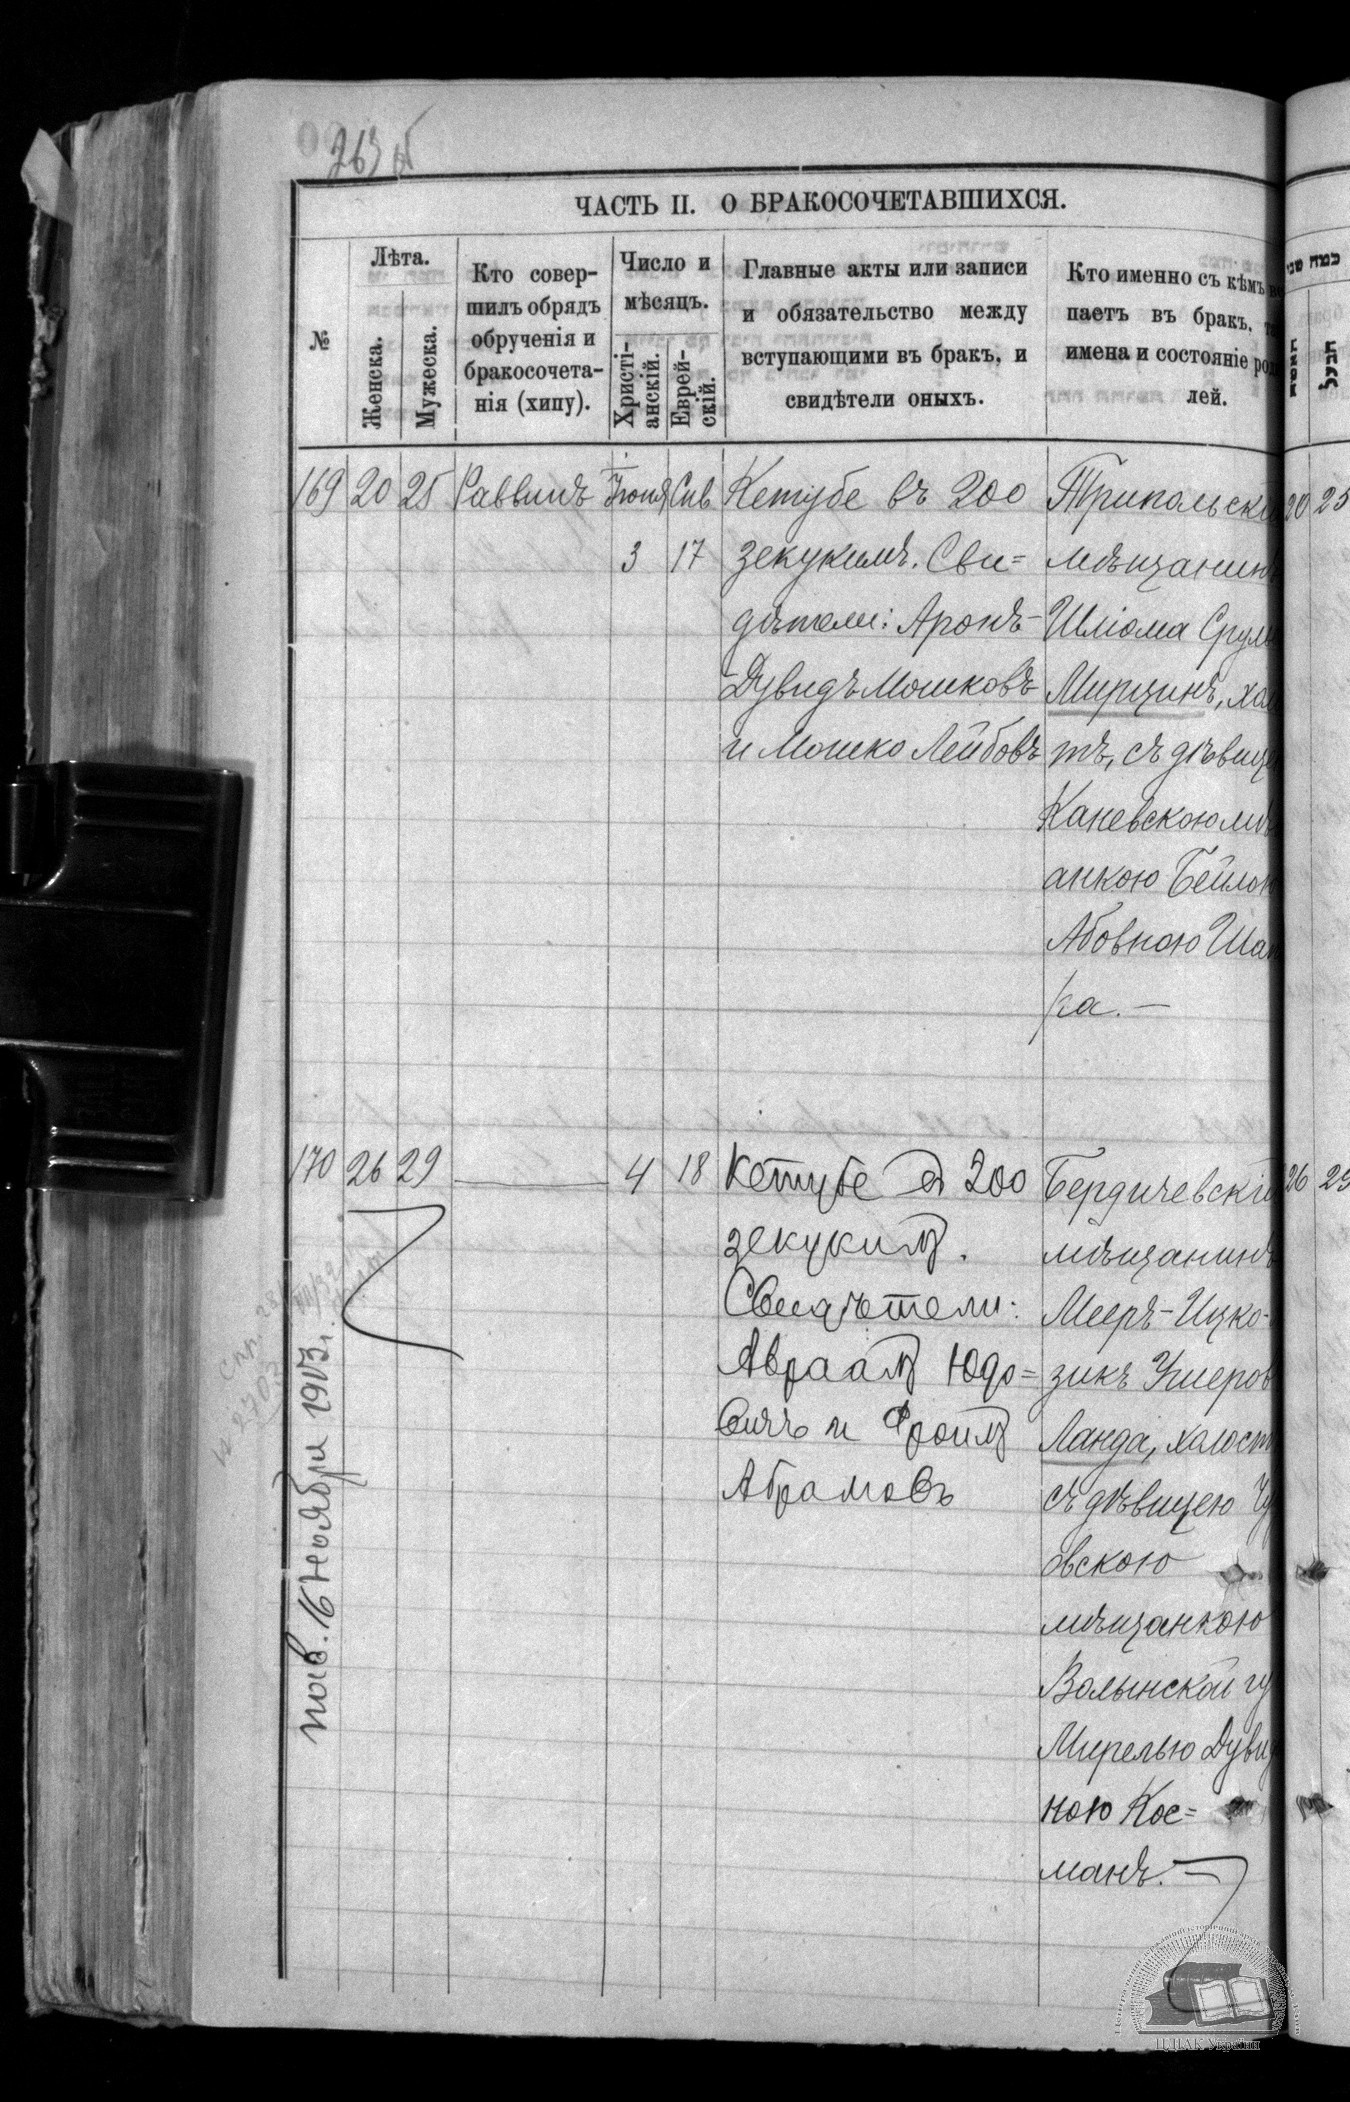 263 об
ЧАСТЬ II. О БРАКОСОЧЕТАВШИХСЯ.
№
Лѣта.
Женска.
Мужеска.
Кто совер-
шилъ обрядъ
обрученія и
бракосочета-
нія (хипу).
Число и
мѣсяцъ.
Христі-
анскій.
Еврей-
скій.
Главные акты или записи
и обязательство между
вступающими въ бракъ, и
свидѣтели оныхъ.
Кто именно съ кѣмъ вс
паетъ въ бракъ, т
имена и состояніе род
лей.
כמה שני
האשה
הבעל
169 20 25 Раввинъ Іюня Сив
3 17
Кетубе въ 200
зекукимъ. Сви=
дѣтели: Аронъ-
Дувидъ Мошковъ
и Мошко Лейбовъ
Трипольскі
мѣщанинъ
Шліома Срул
Мирцинъ, хол
тъ, съ дѣвице
Каневскою мѣщ
анкою Бейлою
Абовною Шап
ра. —
20 25
170 26 29 — 4 18
Кетубе въ 200
зекукимъ.
Свидѣтели:
Авраамъ Юдо=
вичъ и Фроимъ
Абрамовъ
Бердичевскій
мѣщанинъ
Мееръ-Ицко-
зикъ Ушеров
Ланда, холост
съ дѣвицею Чу
овскою
мѣщанкою
Волынской гу
Мирелью Дувид
ною Кос=
манъ. —
26 29
16 Ноября 1913 г.
ЦДІАК України